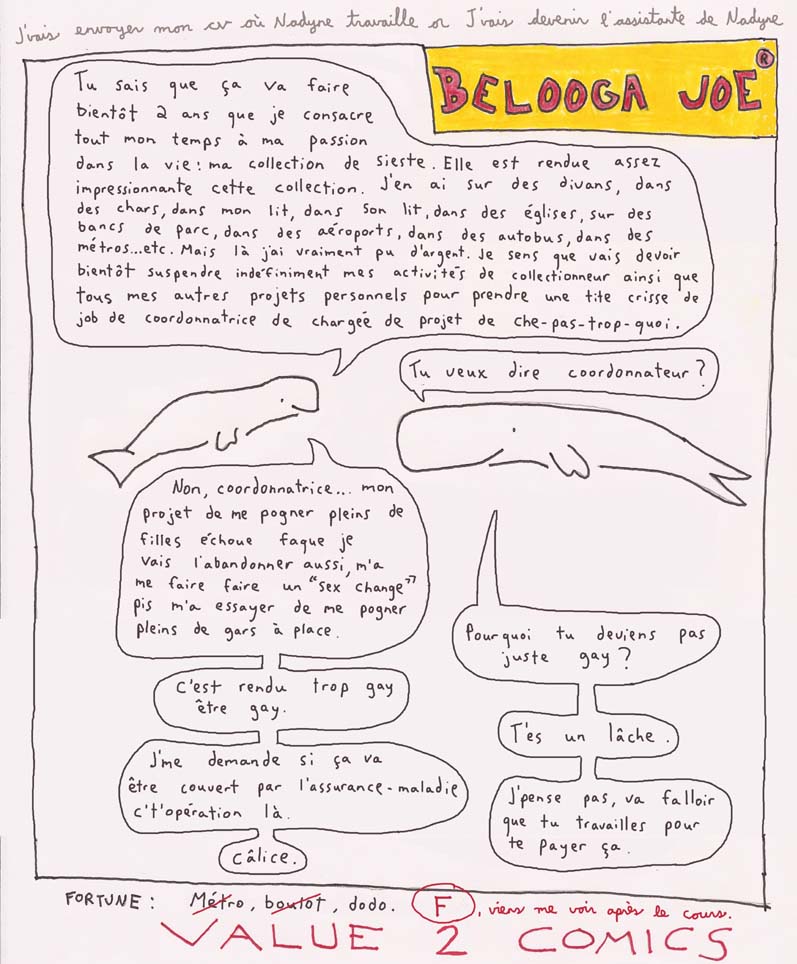 J'vais envoyer mon cv où Nadyne travaille or J'vais devenir l'assistante de Nadyne
BELOOGA JOE ®
Tu sais que ça va faire
bientôt 2 ans que je consacre
tout mon temps à ma passion
dans la vie: ma collection de sieste. Elle est rendue assez
impressionnante cette collection. J'en ai sur des divans, dans
des chars, dans mon lit, dans son lit, dans des églises, sur des
bancs de parc, dans des aéroports, dans des autobus, dans des
métros...etc. Mais là j'ai vraiment pu d'argent. Je sens que vais devoir
bientôt suspendre indéfiniment mes activités de collectionneur ainsi que
tous mes autres projets personnels pour prendre une tite crisse de
job de coordonnatrice de chargée de projet de che-pas-trop-quoi.
Tu veux dire coordonnateur?
Non, coordonnatrice... mon
projet de me pogner pleins de
filles échoue faque je
vais l'abandonner aussi, m'a
me faire faire un "sex change"
pis m'a essayer de me pogner
pleins de gars à place.
Pourquoi tu deviens pas
juste gay?
C'est rendu trop gay
être gay.
T'es un lâche.
J'me demande si ça va
être couvert par l'assurance-maladie
c't'opération là.
J'pense pas, va falloir
que tu travailles pour
te payer ça.
câlice.
FORTUNE: Métro, boulot, dodo. F, viens me voir après le cours.
VALUE 2 COMICS